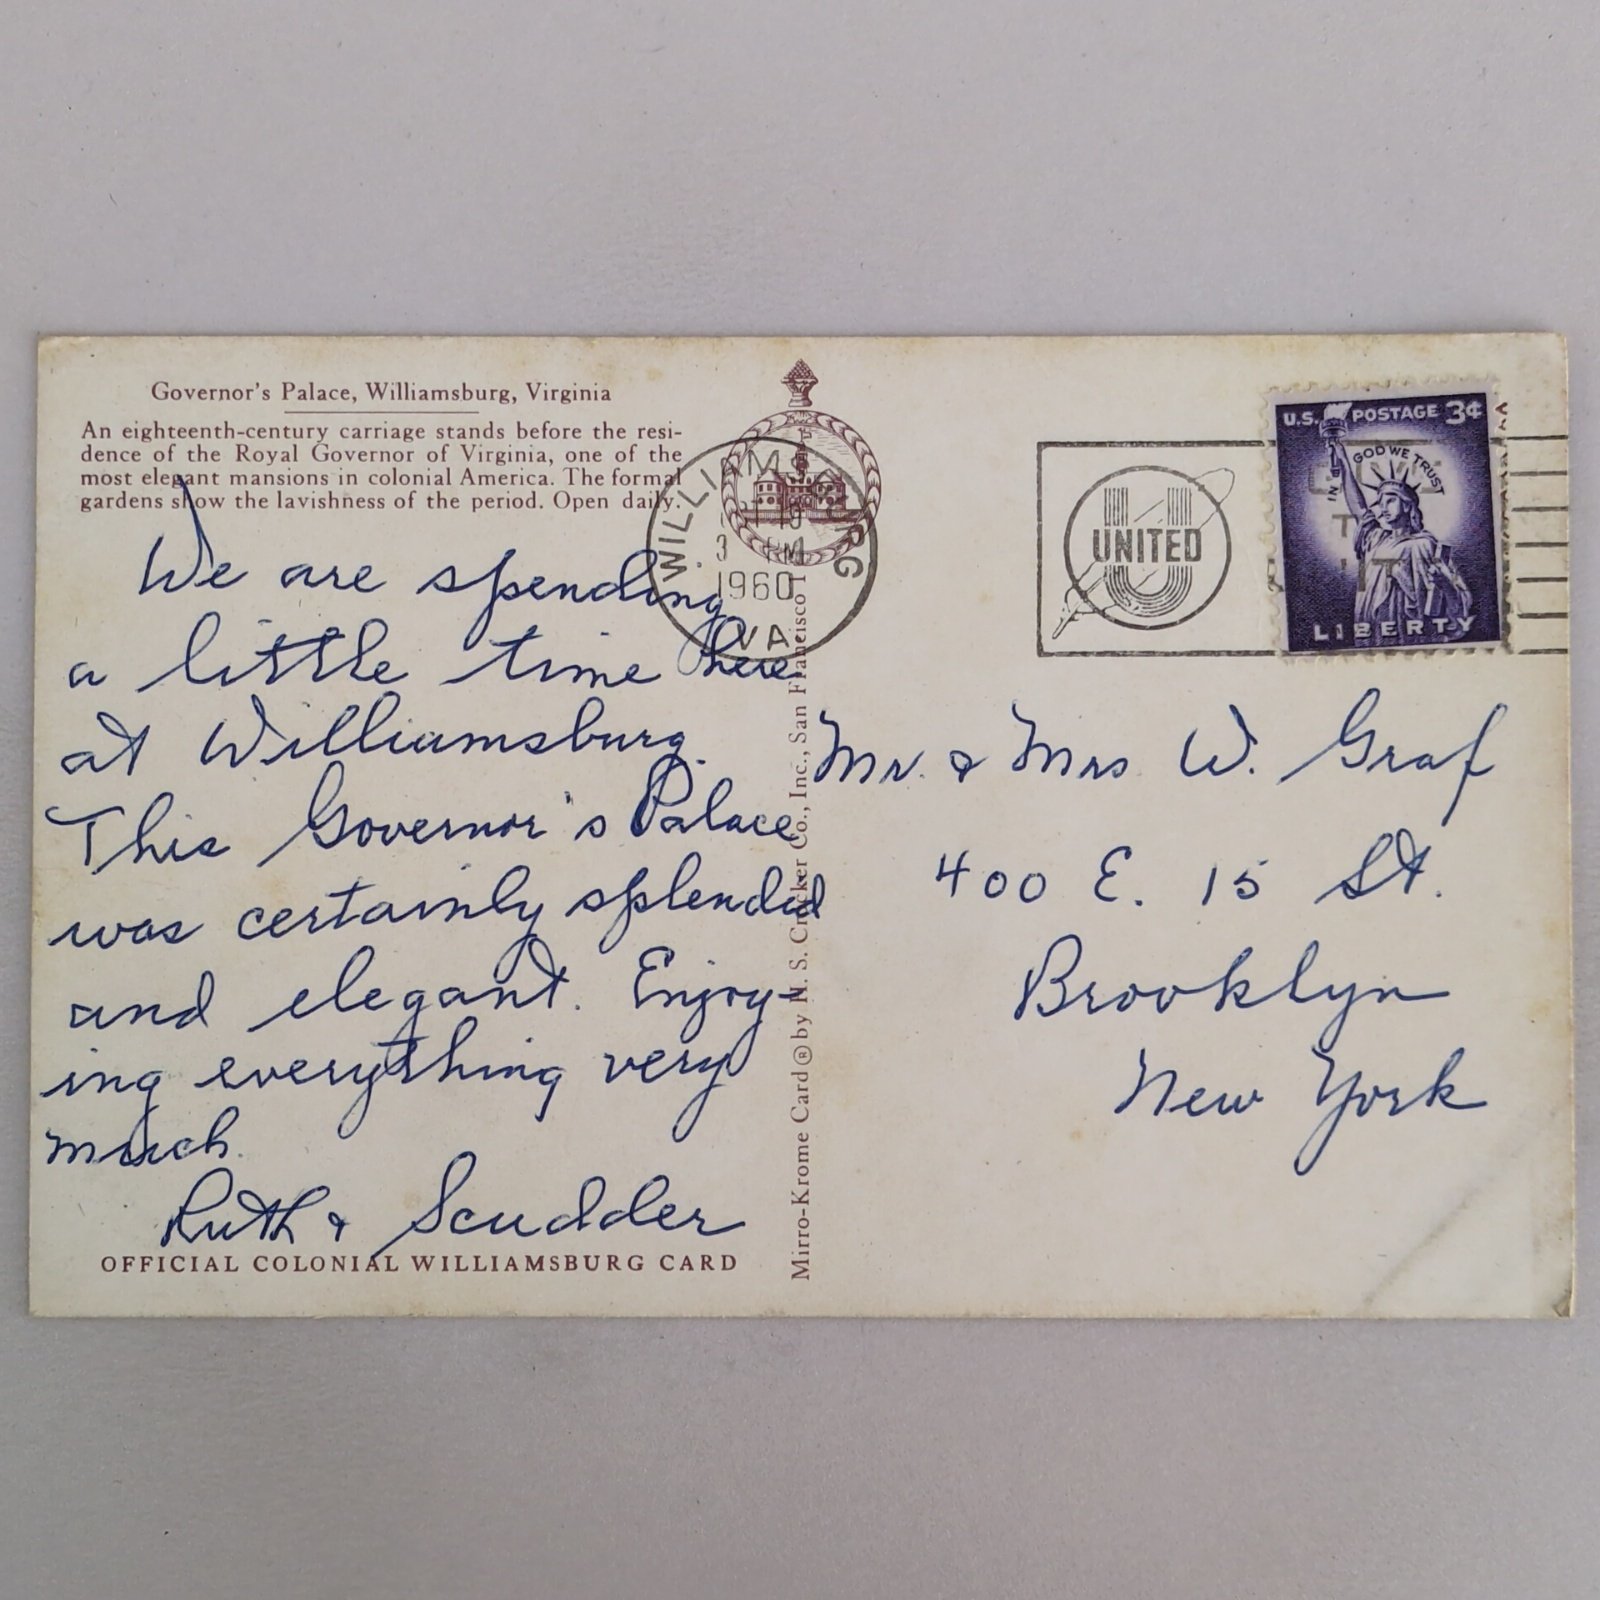 Governor's Palace, Williamsburg, Virginia
An eighteenth-century carriage stands before the resi-
dence of the Royal Governor of Virginia, one of the
most elegant mansions in colonial America. The formal
gardens show the lavishness of the period. Open daily.
We are spending
a little time here
at Williamsburg.
This Governor's Palace
was certainly splendid
and elegant. Enjoy-
ing everything very
much.
Ruth & Scudder
OFFICIAL COLONIAL WILLIAMSBURG CARD
Mirro-Krome Card® by H. S. Crocker Co., Inc., San Francisco 1
WILLIAMSBURG
3 PM
1960
VA.
UNITED
U.S. POSTAGE 3¢
IN GOD WE TRUST
LIBERTY
Mr. & Mrs W. Graf
400 E. 15 St.
Brooklyn
New York